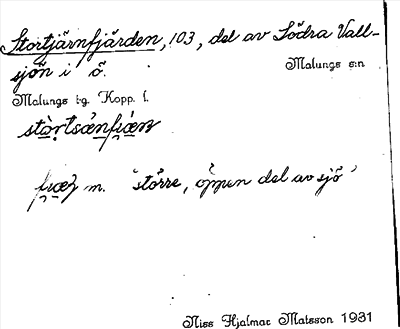 Stortjärnfjärden, 103, del av Södra Vall-
sjön i ö.
Malungs sn
Malungs tg. Kopp. l.
m. "större, öppen del av sjö"
Nils Hjalmar Matsson 1931